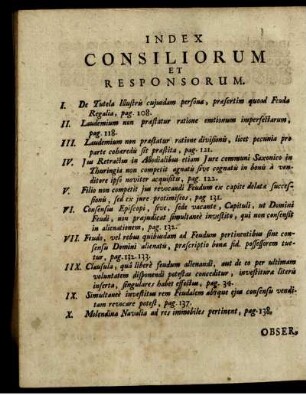 INDEX
CONSILIORUM
ET
RESPONSORUM.
I. De Tutela Illustris cujusdam personæ, præsertim quoad Feuda
Regalia, pag. 108.
II. Laudemium non præstatur ratione emtionum imperfectarum,
pag. 118.
III. Laudemium non præstatur ratione divisionis, licet pecunia pro
parte cohæredis sit præstita, pag. 121.
IV. Jus Retractus in Allodialibus etiam Jure communi Saxonico in
Thuringia non competit agnatis sive cognatis in bonis à ven-
ditore ipso noviter acquisitis, pag. 122.
V. Filio non competit jus revocandi Feudum ex capite delatæ succes-
sionis, sed ex jure protimiseos, pag. 131.
VI. Consensus Episcopi, sive, sede vacante, Capituli, ut Domini
Feudi, non præjudicat simultaneè investito, qui non consensit
in alienationem, pag. 132.
VII. Feudis, vel rebus quibusdam ad Feudum pertinentibus sine con-
sensu Domini alienatis, præscriptio bonæ fid. possessorem tue-
tur, pag. 132. 133.
IIX. Clausula, quâ liberè feudum alienandi, aut de eo per ultimam
voluntatem disponendi potestas conceditur, investituræ literis
inserta, singulares habet effectus, pag. 34.
IX. Simultaneè investitus rem Feudalem absque ejus consensu vendi-
tam revocare potest, pag. 137.
X. Molendina Navalia ad res immobiles pertinent, pag. 138.
OBSER.